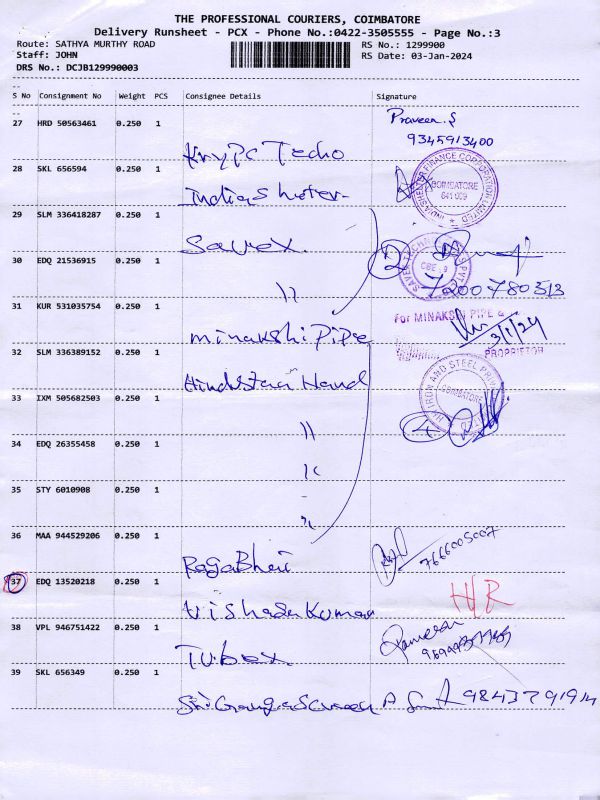 THE PROFESSIONAL COURIERS, COIMBATORE
Delivery Runsheet - PCX - Phone No.:0422-3505555 - Page No.:3
Route: SATHYA MURTHY ROAD
RS No.: 1299900
Staff: JOHN
RS Date: 03-Jan-2024
DRS No.: DCJB129990003
S No Consignment No Weight PCS Consignee Details Signature
27 HRD 50563461 0.250 1
Praveen.S
9345913400
Krypc Techo
28 SKL 656594 0.250 1
INDIA SHELTER FINANCE CORPORATION LIMITED
COIMBATORE
641 009
India Shelter
29 SLM 336418287 0.250 1
Savex
30 EDQ 21536915 0.250 1
2
CBE - 9
7200780513
"
31 KUR 531035754 0.250 1
For MINAKSHI PIPE &
3/1/24
PROPRIETOR
minakshi pipe
32 SLM 336389152 0.250 1
Hindustan Hand
33 IXM 505682503 0.250 1
COIMBATORE
4
"
34 EDQ 26355458 0.250 1
"
35 STY 6010908 0.250 1
"
36 MAA 944529206 0.250 1
7666005007
37 EDQ 13520218 0.250 1
H/R
38 VPL 946751422 0.250 1
Tubex
39 SKL 656349 0.250 1
9843791914